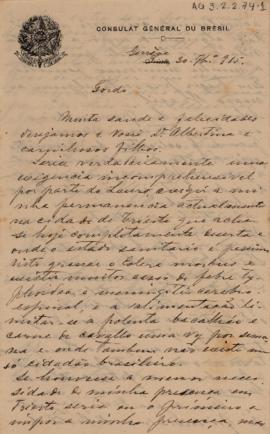 AG 3.2.2.74-1
CONSULAT GÉNÉRAL DU BRÉSIL
Genève
30 915.
Gordo
Muita saude e felicidades
desejamos a Você D. Albertina e
carinhosos filhos.
Seria verdadeiramente uma
exigencia incomprehensivel
por parte do Lauro, exigir a mi-
nha permanencia actualmente
na cidade de Trieste que acha-
se hoje completamente deserta e
onde o estado sanitario é pessimo
visto grassar o Colera morbus e
existir muitos casos de febre ty-
phoidea e meningite cerebro
espinal, e a alimentação li-
mitar-se a polenta bacalháo e
carne de cavallo uma vez por sema-
na e onde tambem não existe um
só cidadão brasileiro.
Se houvesse a menor neces-
sidade de minha presença em
Trieste seria eu o primeiro a
impor a minha presença, mas